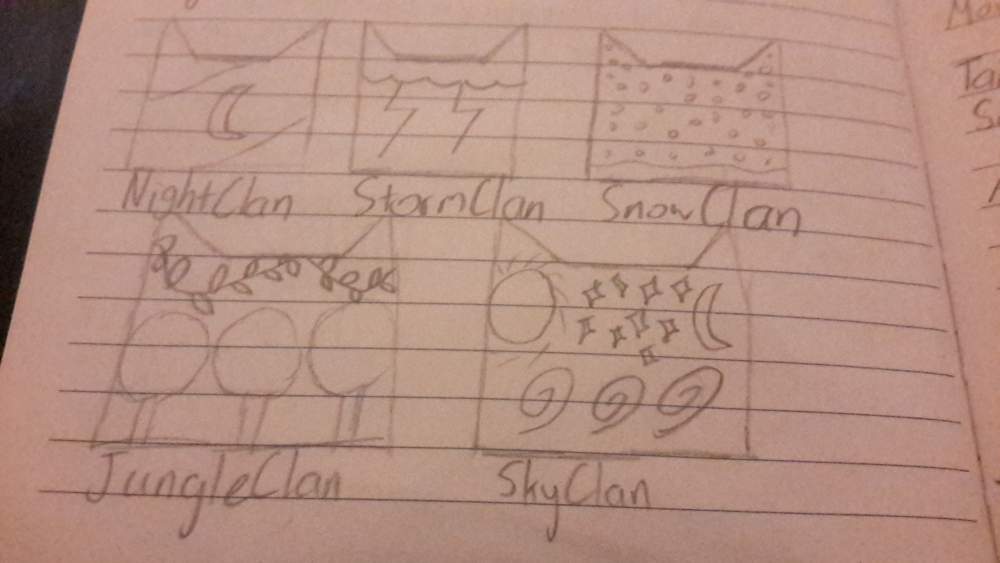 NightClan StormClan SnowClan
JungleClan SkyClan